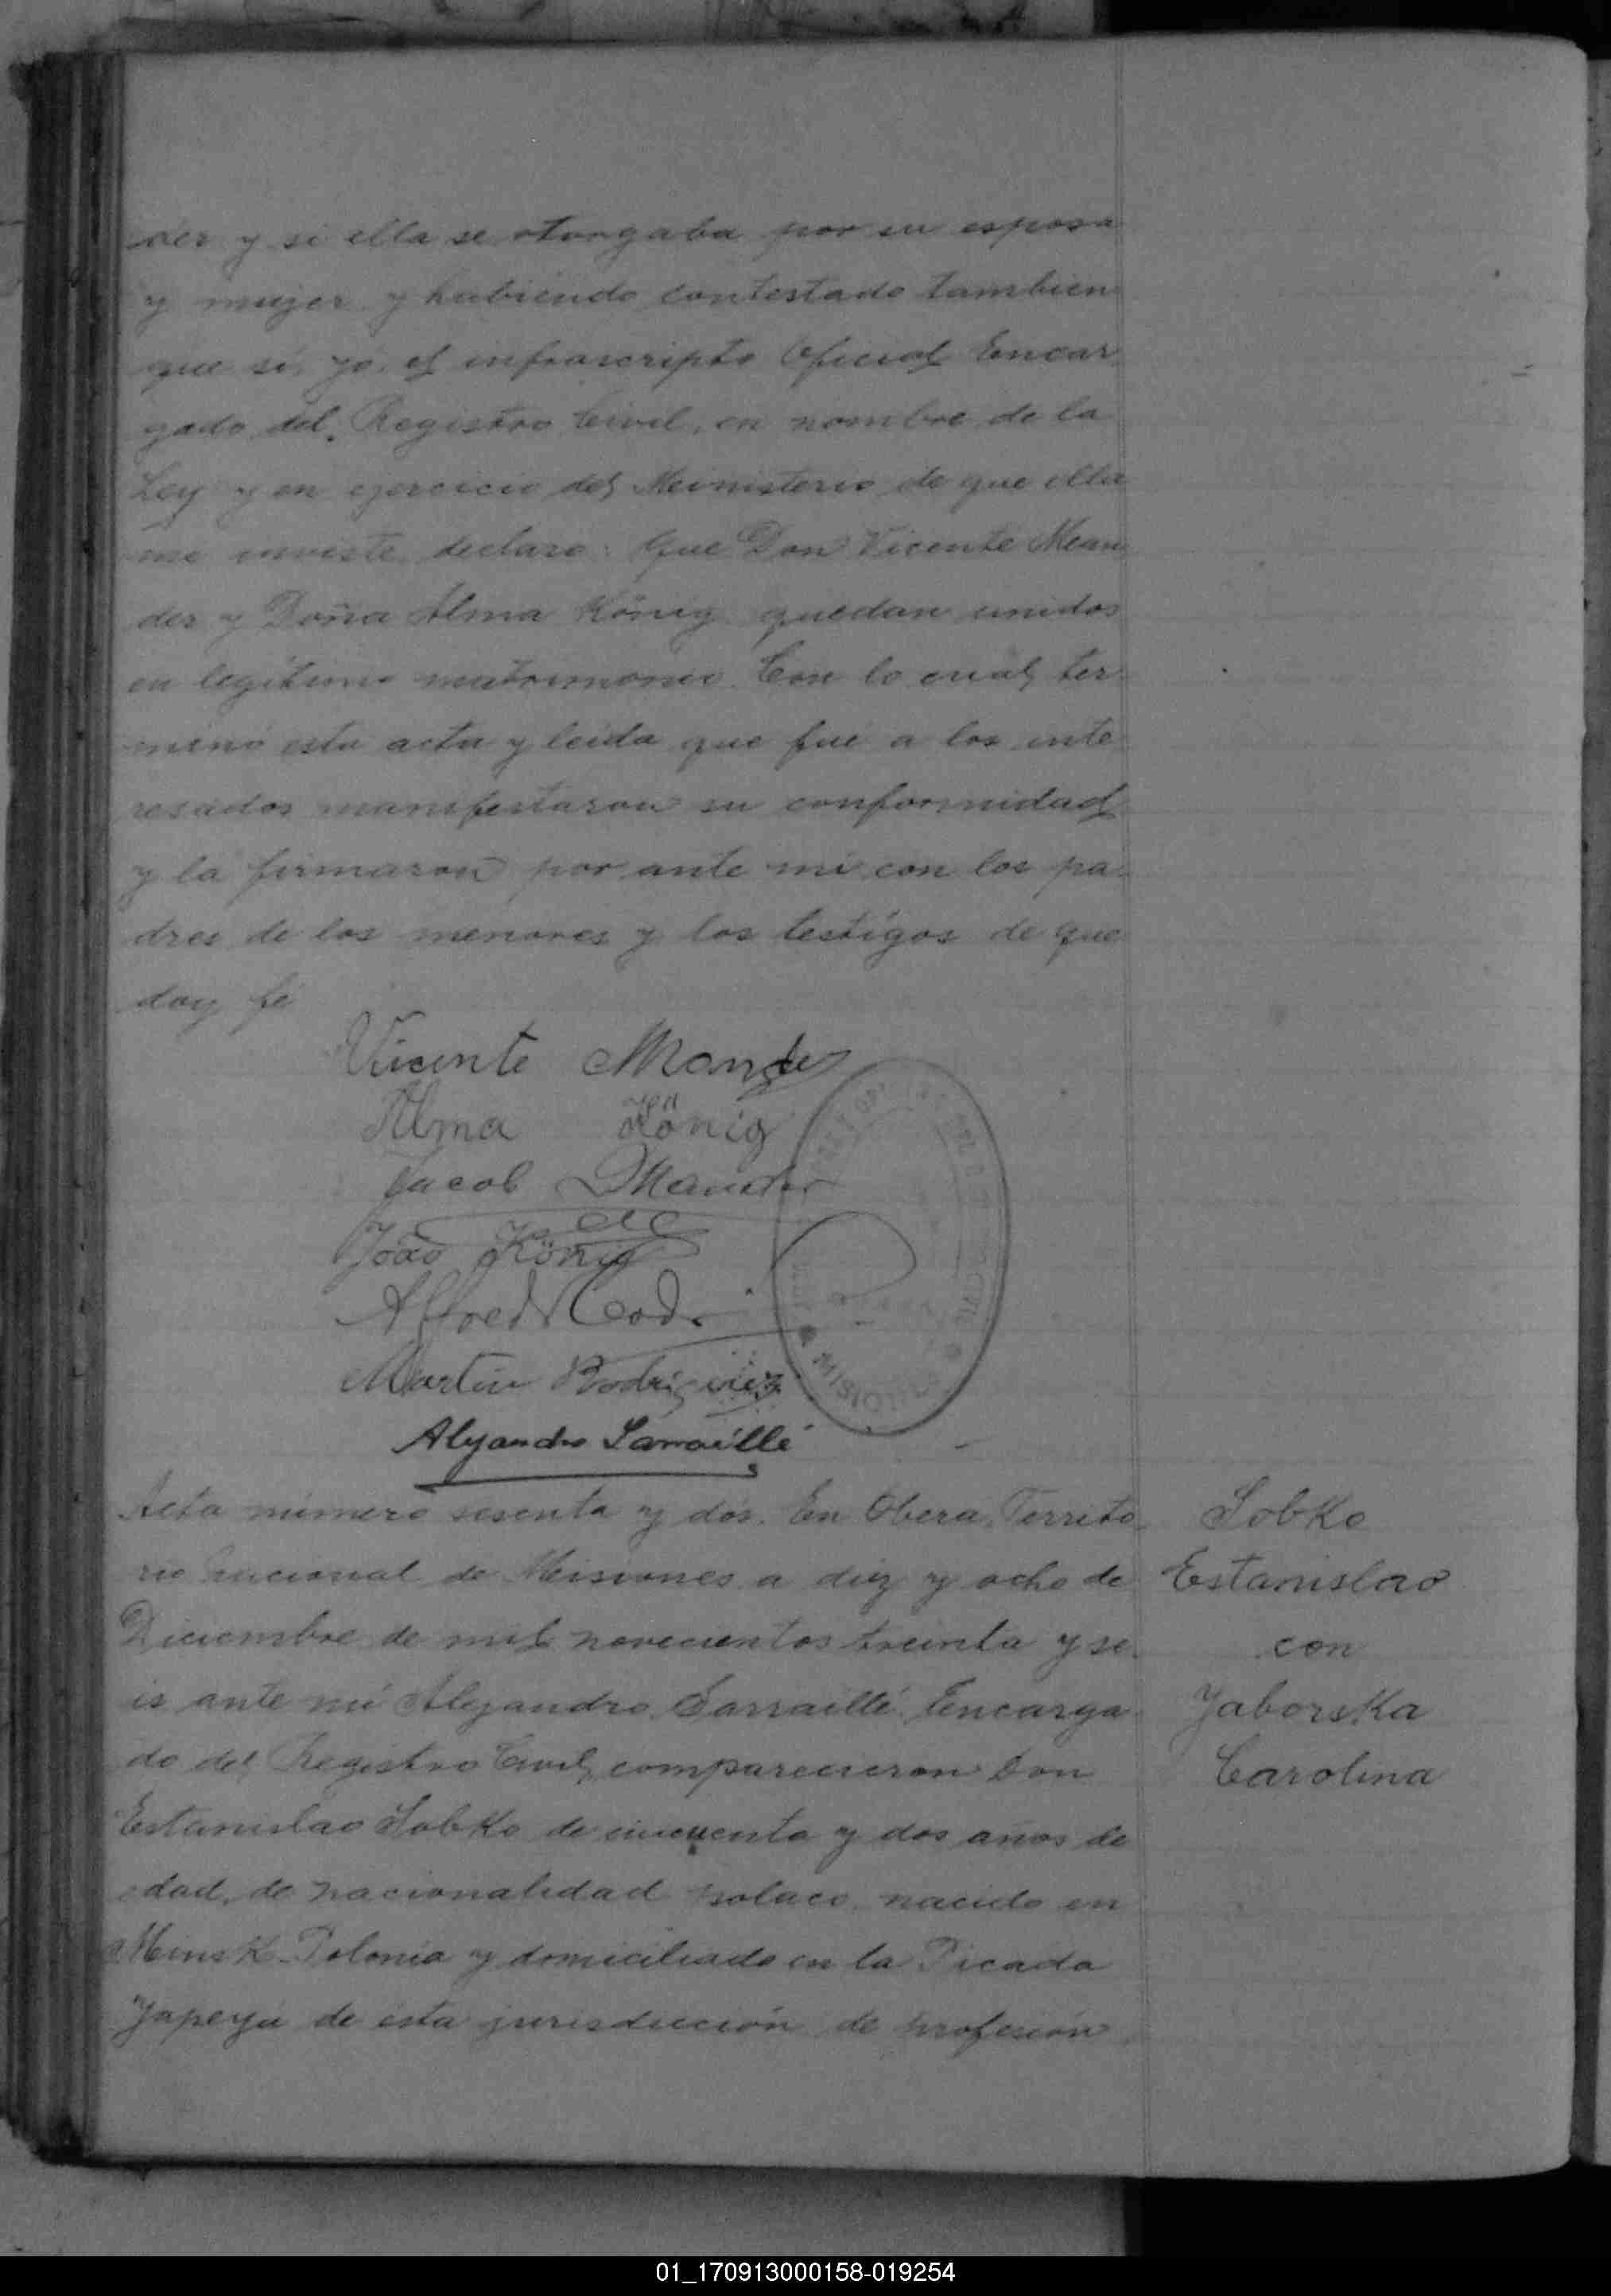 der y si ella se otorgaba por su esposa
y mujer y habiendo contestado tambien
que sí, yo, el infrascripto Oficial Encar
gado del Registro Civil, en nombre de la
Ley y en ejercicio del Meinisterio de que ella
me inviste declaro: Que Don Vicente Mean
der y Doña Alma König quedan unidos
en legítimo matrimonio. Con lo cual ter
minó esta acta y leida que fué a los inte
resados manifestaron su conformidad
y la firmaron por ante mi con los pa
dres de los menores y los testigos de que
doy fé
Vicente Mander
Alma König
Jacob Mander
João König
Alfred
Martin Rodriguez
Alejandro Sarraillé
MISIONES
Acta número sesenta y dos. En Obera, Territo
rio nacional de Misiones a diez y ocho de
Diciembre de mil novecientos treinta y se
is ante mi Alejandro Sarraillé Encarga
do del Registro Civil, comparecieron Don
Estanislao Sobko de cincuenta y dos años de
edad, de nacionalidad polaco, nacido en
Minsk-Polonia y domiciliado en la Picada
Yapeyú de esta jurisdicción de profesión
Sobko
Estanislao
con
Jaborska
Carolina
01_170913000158-019254